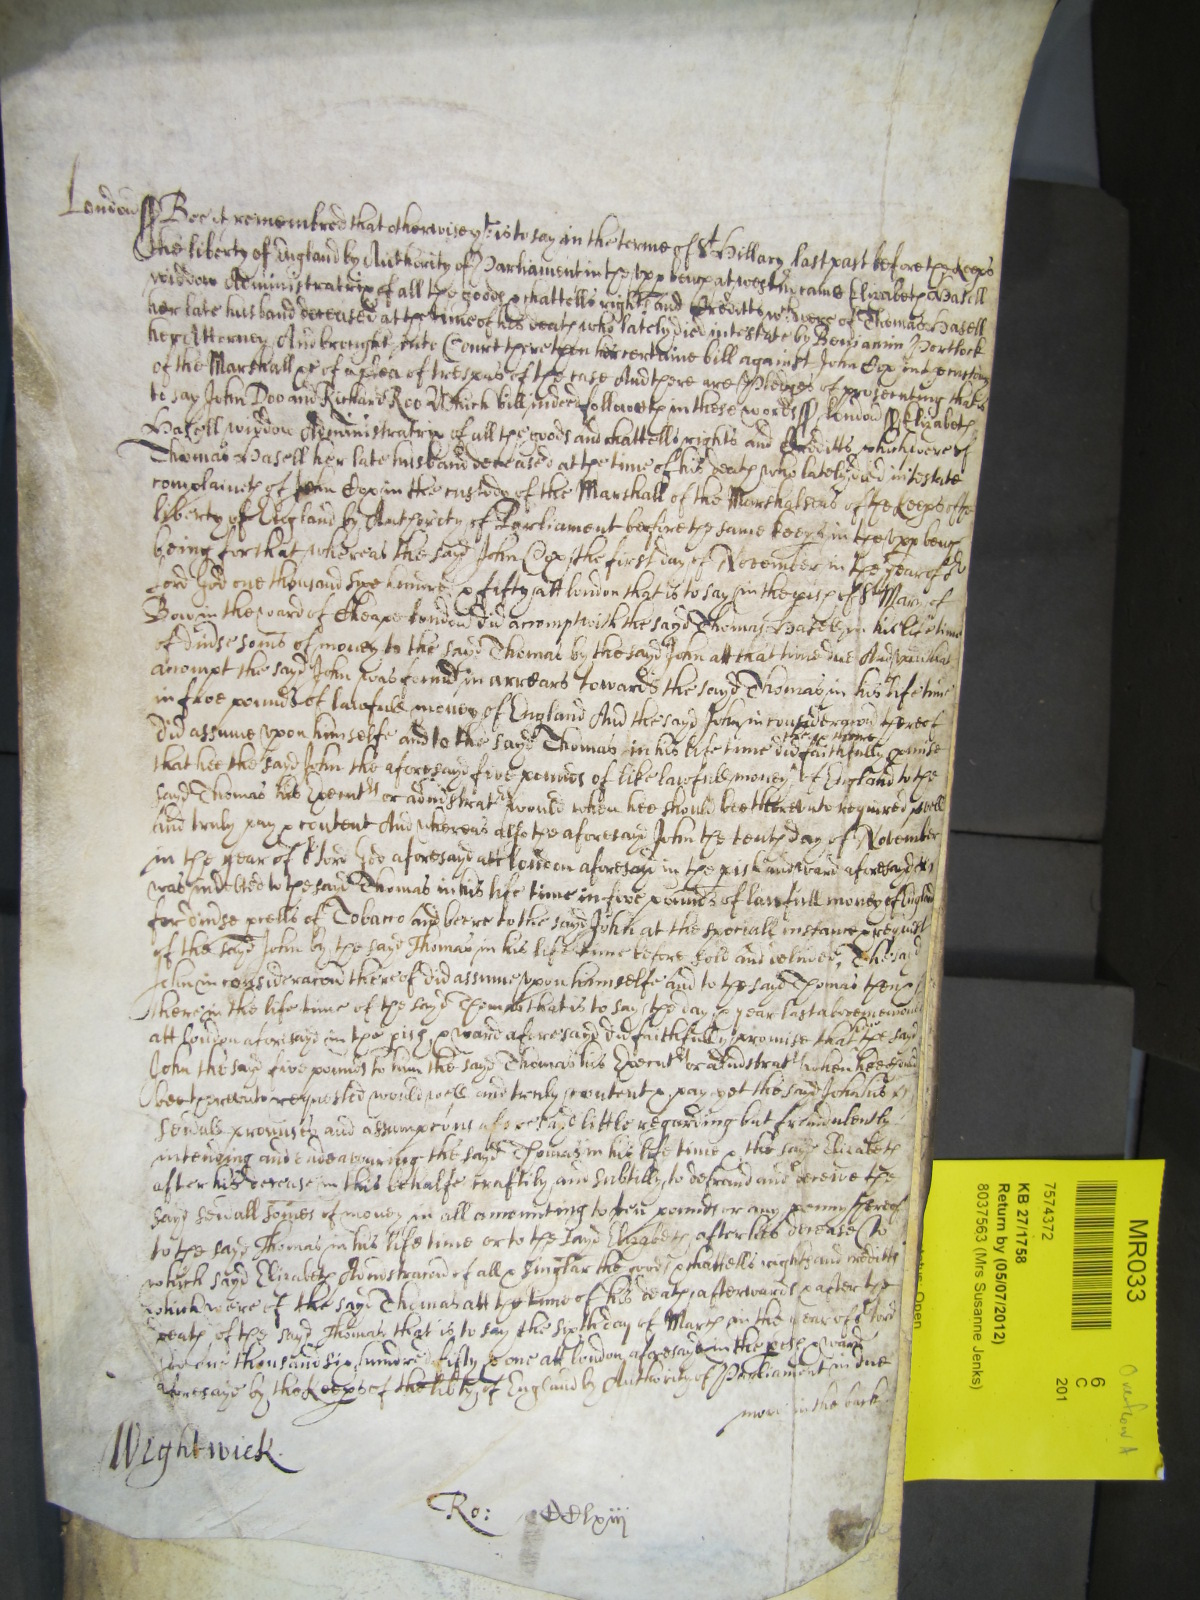 London ss Bee it remembred that otherwise yt is to say in the terme of St Hillary last past before the Keeps
the liberty of England by Authority of Parliament in the upp bench at westm came Elizabeth Hasell
widdow Administratrix of all the goods & chattells rights and Creditts wch were of Thomas Hasell
her late husband deceased att the time of his death who lately died intestate by Benjamin Portlock
her Attorney And brought into Court there then her certaine bill against John Cox in the custody
of the Marshall &c of a plea of trespas of the case And there are Pledges of prosecuting that is
to say John Doo and Richard Roo Which bill indeed followeth in these words ss London ss Elizabeth
Hasell widdow Administratrix of all the goods and chattells rights and Creditts which were of
Thomas Hasell her late husband deceased at the time of his death who lately died intestate
complaineth of John Cox in the custody of the Marshall of the Marshalseas of the Keeps of the
liberty of England by Authority of Parliament before the same Keeps in the upp bench
being for that whereas the sayd John Cox the first day of November in the year of or
Lord God one thousand six hundred & fifty att London that is to say in the pish of St Mary of
Bow in the ward of Cheape London did accompt with the sayd Thomas Hasell in his life time
of divse soms of money to the sayd Thomas by the sayd John att that time due And upon that
accompt the sayd John was found in arrears towards the sayd Thomas in his life time
in five pounds of lawfull money of England And the sayd John in consideracon thereof
did assume upon himselfe and to the sayd Thomas in his life time did faithfully pmise
then & there
that hee the said John the aforesayd five pounds of like lawfull money of England to the
sayd Thomas his Executrs or administratrs would when hee should bee thereunto required well
and truly pay & content And whereas also the aforesayd John the tenth day of November
in the year of or Lord God aforesayd att London aforesaid in the pish and ward aforesayd
was indebted to the said Thomas in his life time in five pounds of lawfull money of England
for divse pcells of Tobacco and beere to the sayd John at the speciall instance & request
of the sayd John by the sayd Thomas in his life time before sold and delived The sayd
John in consideracon thereof did assume upon himselfe and to the sayd Thomas then &
there in the life time of the sayd Thomas that is to say the day & year last abovemenconed
att London aforesayd in the pish & ward aforesayd did faithfully promise that the sayd
John the sayd five pounds to him the sayd Thomas his Executrs or administratrs when hee should
bee thereunto requested would well and truly content & pay yet the sayd John his
sevall promises and assumpcons aforesayd little regarding but fraudulently
intending and endeavouring the sayd Thomas in his life time & the sayd Elizabeth
after his decease in this behalfe craftily and subtilly to defraud and deceive the
sayd sevall somes of money in all amounting to ten pounds or any penny thereof
to the sayd Thomas in his life time or to the sayd Elizabeth after his decease (to
which sayd Elizabeth Administracon of all & singlar the goods & chattells rights and creditts
which were of the sayd Thomas att the time of his death afterwards & after the
death of the sayd Thomas that is to say the sixth day of March in the year of or Lord
God one thousand six hundred fifty & one att London aforesayd in the pish & ward
aforesayd by the Keeps of the libty of England by Authority of Parliament in due
more in the back
Wightwick.
Ro: CClxiij
MR033
7574372
KB 27/1758
Return by (05/07/2012)
8037563 (Mrs Susanne Jenks)
6
C
201
Overflow A
Open